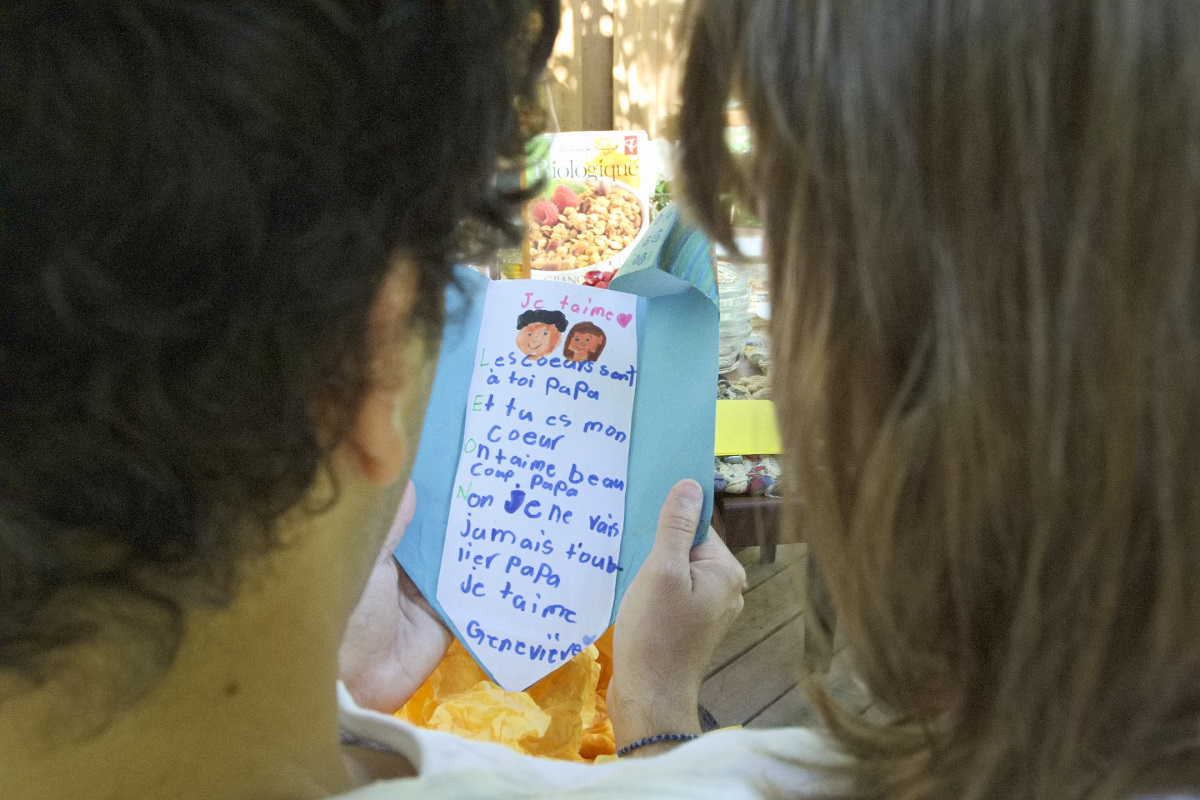 Biologique
Je taime
Les coeurs sont
à toi papa
Et tu es mon
coeur
On taime beau
coup papa
Non je ne vais
jamais t'oub-
lier papa
Je taime
Geneviève